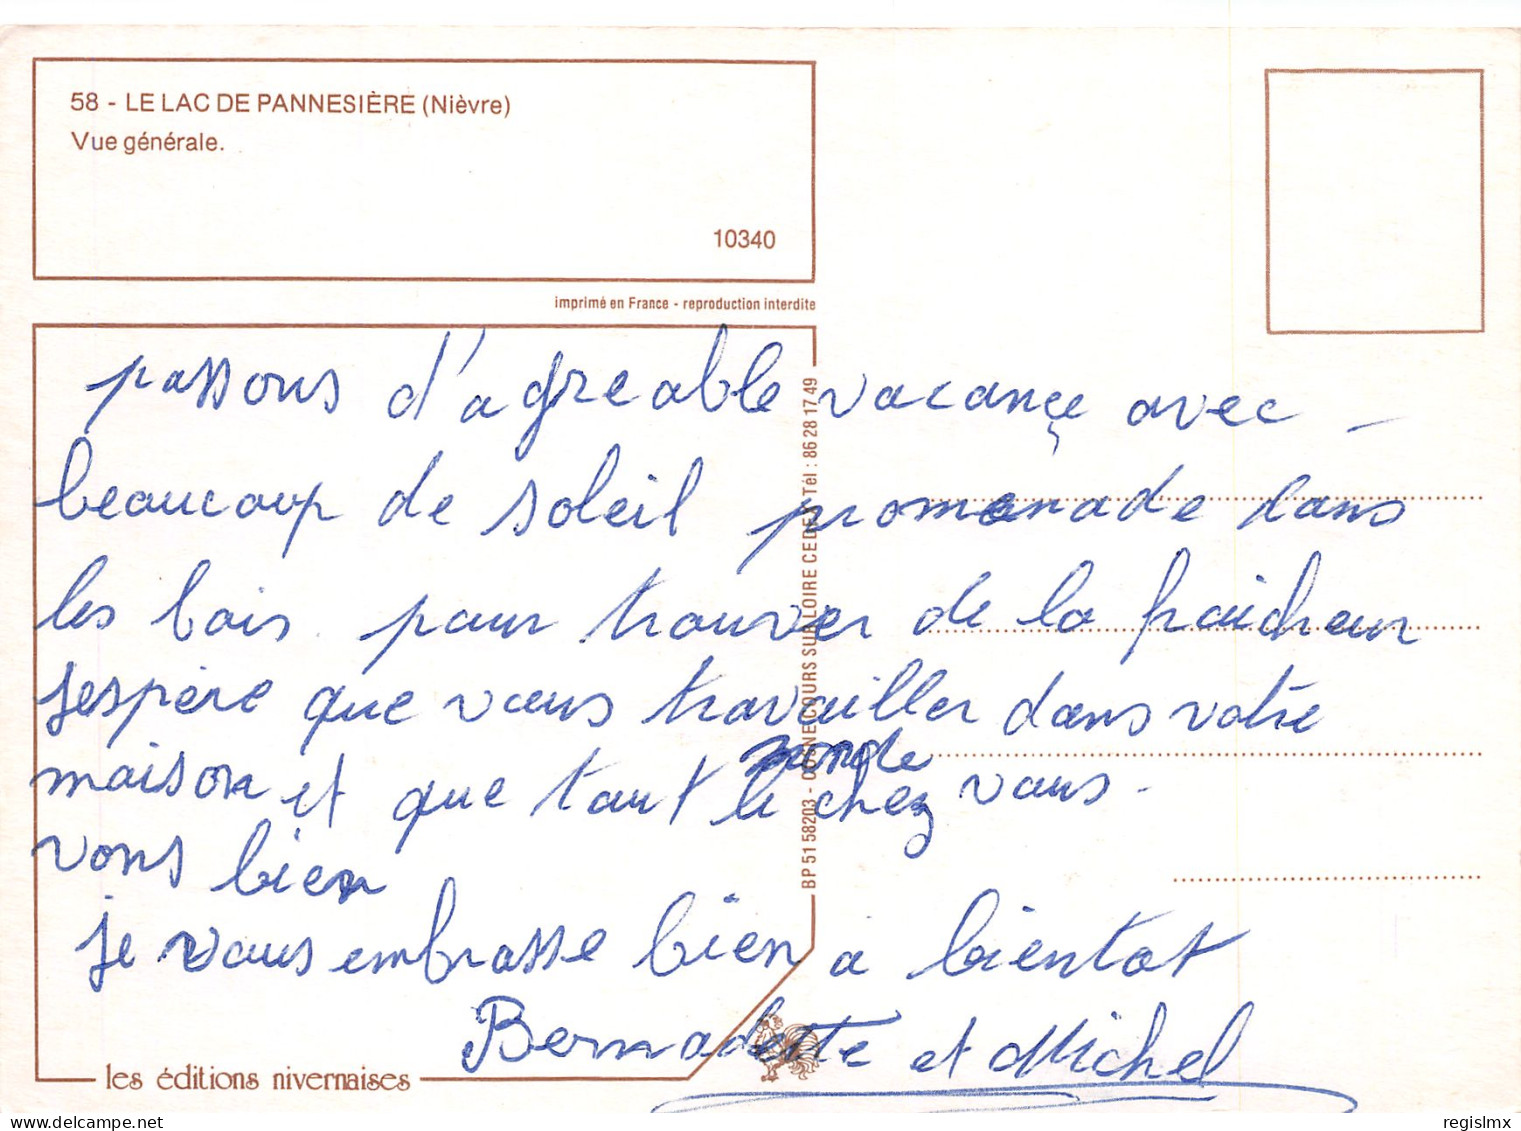 58 - LE LAC DE PANNESIÈRE (Nièvre)
Vue générale.
10340
imprimé en France - reproduction interdite
passons d'agreable vacançe avec -
beaucoup de soleil promenade dans
les bois pour trouver de la fraicheur
jespère que vous travailler dans votre
maison et que tout le monde chez vous -
vons bien
je vous embrasse bien a bientot
Bernadette et Michel
BP 51 58203 - COSNE COURS SUR LOIRE CEDEX Tél : 86 28 17 49
les éditions nivernaises
regislmx